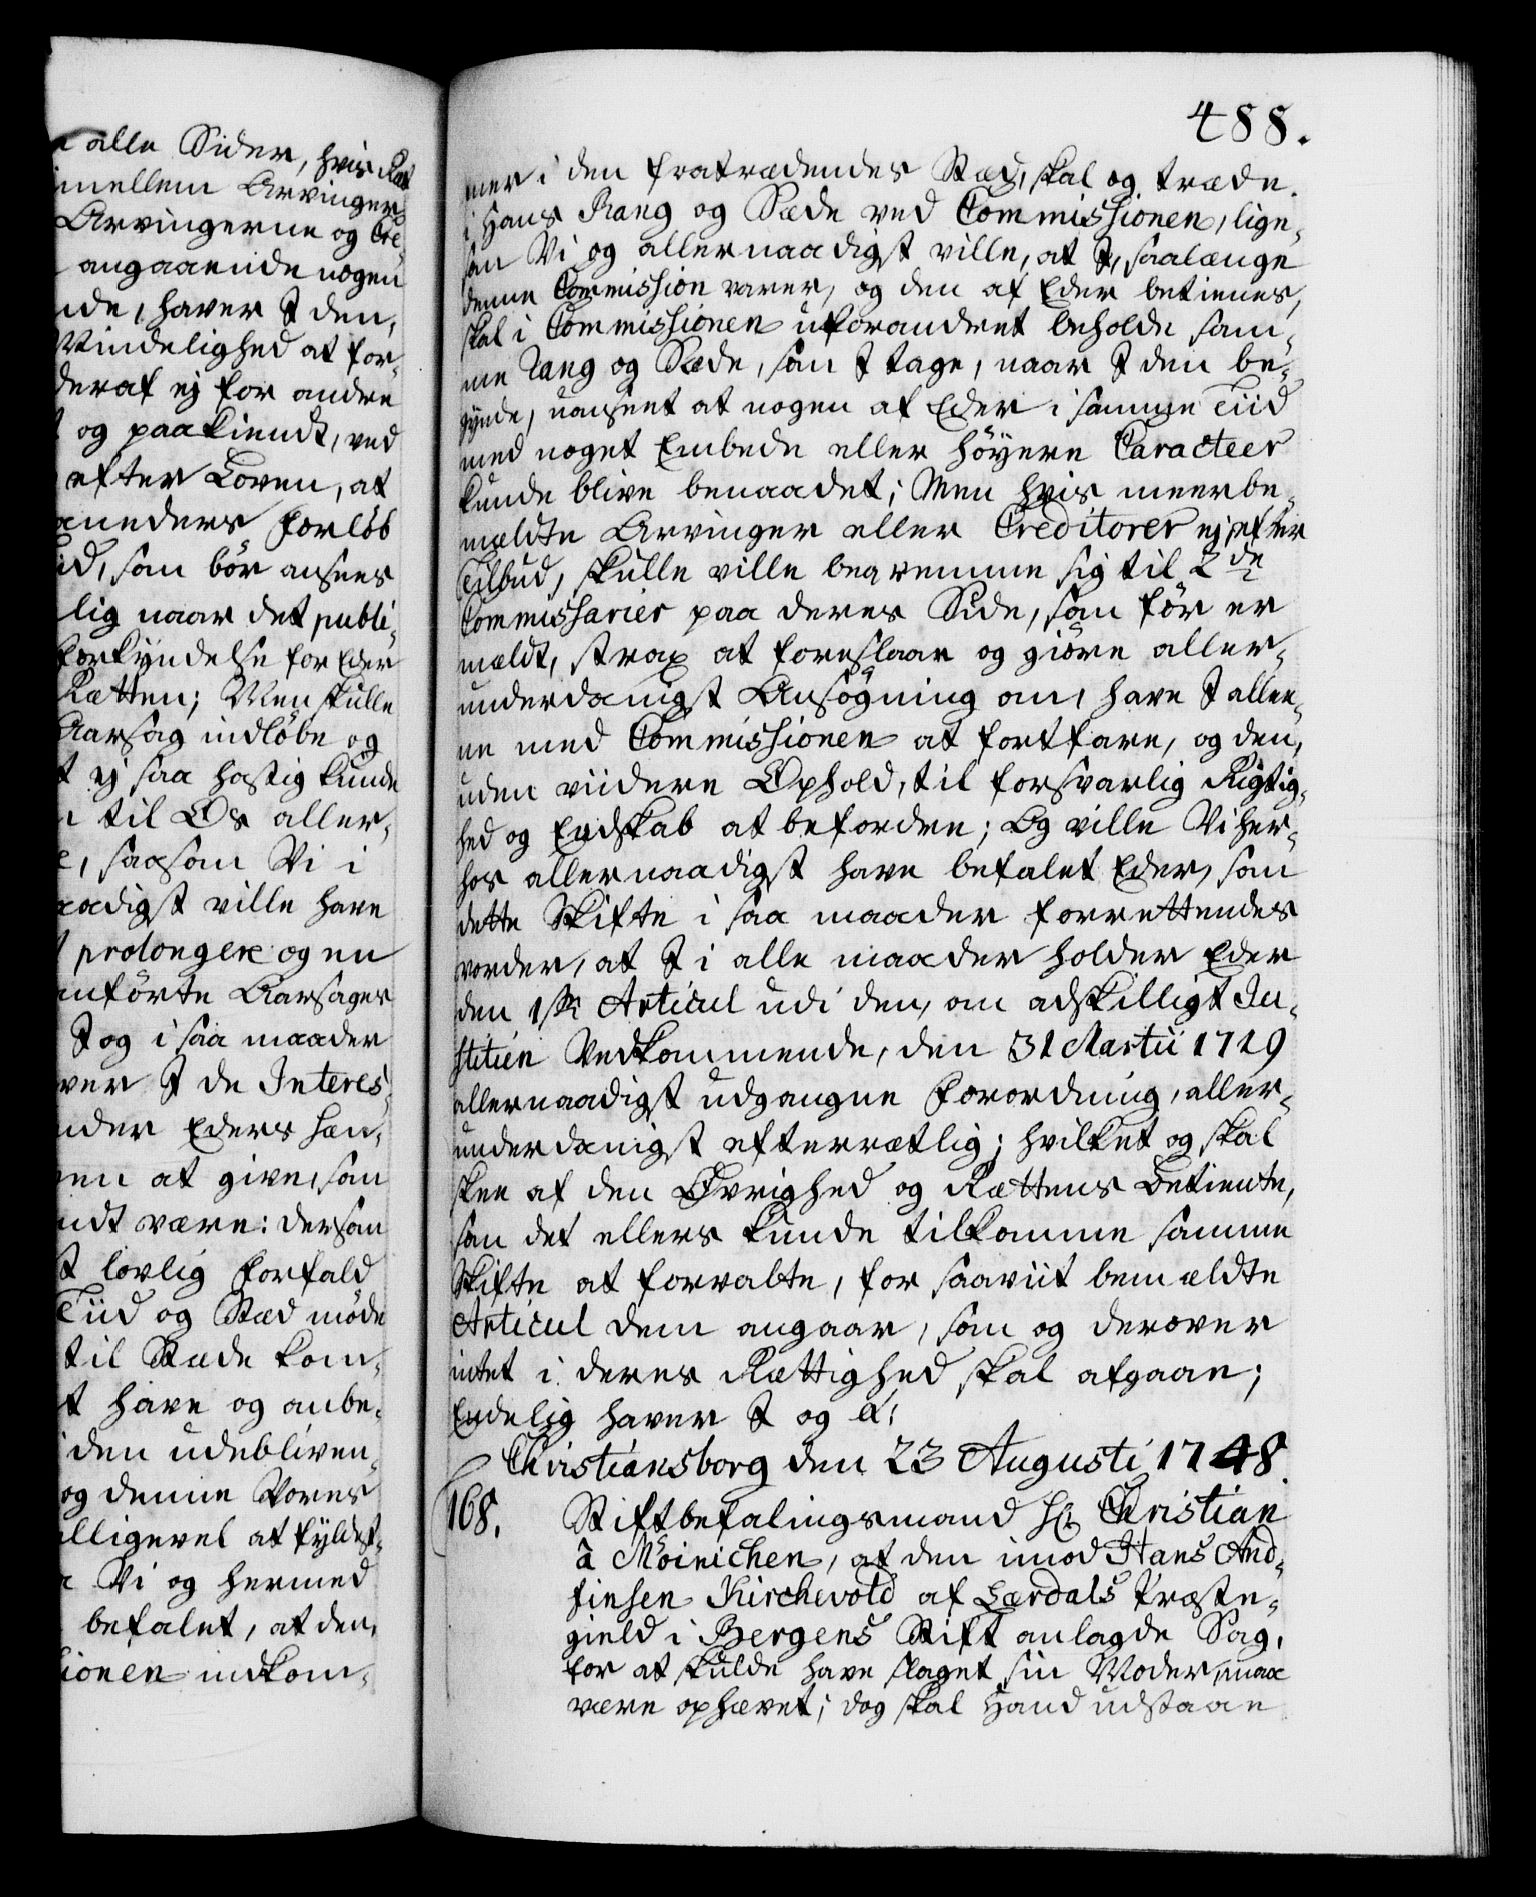 alle Sider, hvis Ret
imellem Arvinger
Arvingerne og Cre-
angaaende nogen
nde, haver I den,
Vindelighed at for-
deraf ej for andre
og paakiendt, ved
efter Loven, at
aneders Forløb
id, som bör ansees
lig naar det publi-
Forkyndelse for Eder
Retten; Men skulle
Aarsag indløbe og
t ej saa hastig kunde
til Os aller-
e, saasom Vi i
aadigst ville have
prolongere og en
anførte Aarsager
I og i saa maader
ver I de Interes-
nder Eders Hæn-
en at give, som
ndt være: dersom
t lovlig Forfald
Tiid og Stæd møde
til Stæde kom-
t have og anbe-
den udebliven-
og denne Vores
alligevel at fyldest-
Vi og hermed
befalet, at den,
sionen indkom-
488.
mer i den fratrædendes Stæd, skal og træde
i Hans Rang og Sæde ved Commissionen, lige-
som Vi og allernaadigst ville, at I, saalænge
denne Commission varer, og den af Eder betienes,
skal i Commissionen uforandret beholde sam-
me Rang og Sæde, som I tage, naar I den be-
gynde, uanseet at nogen af Eder i samme Tiid
med noget Embede eller höyere Caracteer
kunde blive benaadet; Men hvis meerbe-
mældte Arvinger eller Creditorer ej, efter
Tilbud, skulle ville beqvemme sig til 2de
Commissarier paa deres Side, som för er
mældt, strax at foreslaae og giöre aller-
underdanigst Ansögning om, have I allee-
ne med Commissionen at fortfare, og den,
uden viidere Ophold, til forsvarlig Rigtig-
hed og Endskab at befordre; Og ville Vi her-
hos allernaadigst have befalet Eder, som
dette Skifte i saa maader forrettendes
vorder, at I i alle maader holder Eder
den 1ste Articul udi den, om adskilligt Ju-
stitien Vedkommende, den 31 Martii 1719
allernaadigst udgangne Forordning, aller-
underdanigst efterrætlig; hvilket og skal
skee af den Øvrighed og Rættens Betiente,
som det ellers kunde tilkomme samme
Skifte at forvalte, for saaviit bemældte
Articul dem angaar, som og derover
intet i deres Rættighed skal afgaae;
Endelig haver I og &c:
Christiansborg den 23 Augusti 1748.
168. Stiftbefalingsmand Hr. Christian
â Möinichen, at den imod Hans And-
finsen Kirchevold af Lærdals Præste-
gield i Bergens Stift anlagde Sag,
for at skulde have slaget sin Moder, maa
være ophævet; dog skal Hand udstaae